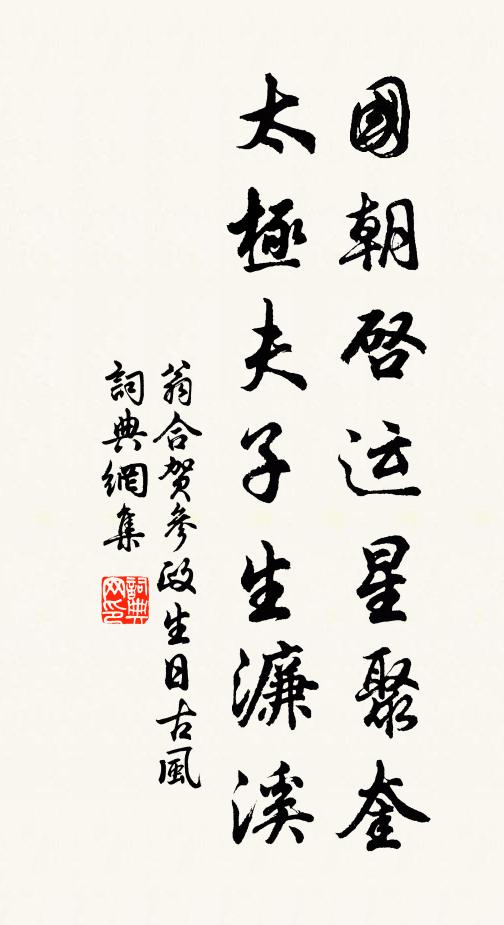 國朝啓运星聚奎
太極夫子生濂溪
翁合贺參政生日古風
詞典網集
詞典網印